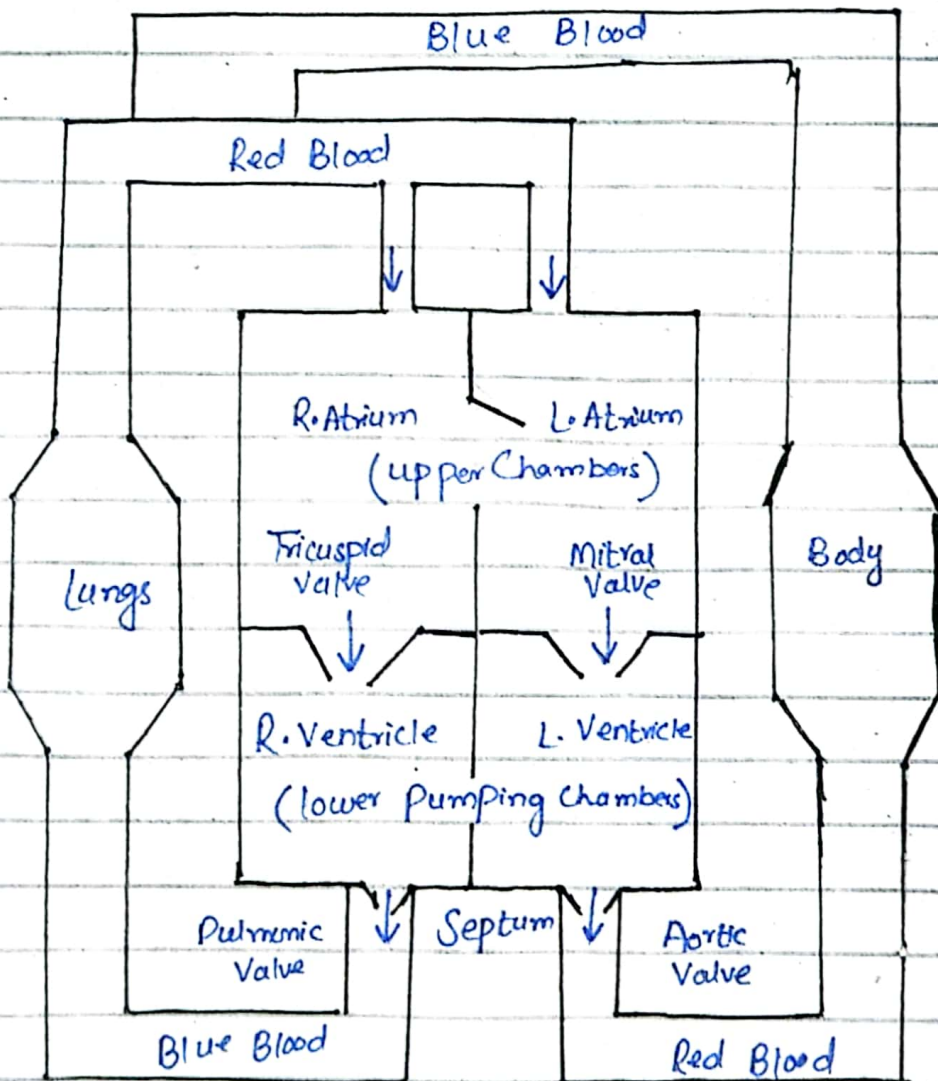 Blue Blood
Red Blood
R.Atrium
L.Atrium
(upper Chambers)
Tricuspid
valve
Mitral
Valve
Body
Lungs
R.Ventricle
L. Ventricle
(lower Pumping Chambers)
Pulmonic
Valve
Septum
Aortic
Valve
Blue Blood
Red Blood